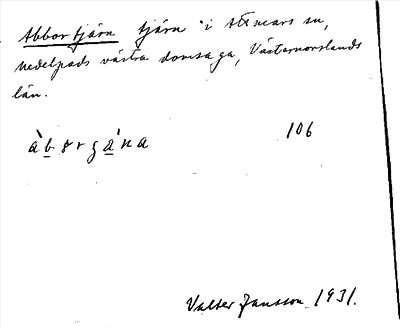 Abbortjärn tjärn i Attmars sn,
Medelpads västra domsaga, Västernorrlands
län.
106
Valter Jansson 1931.